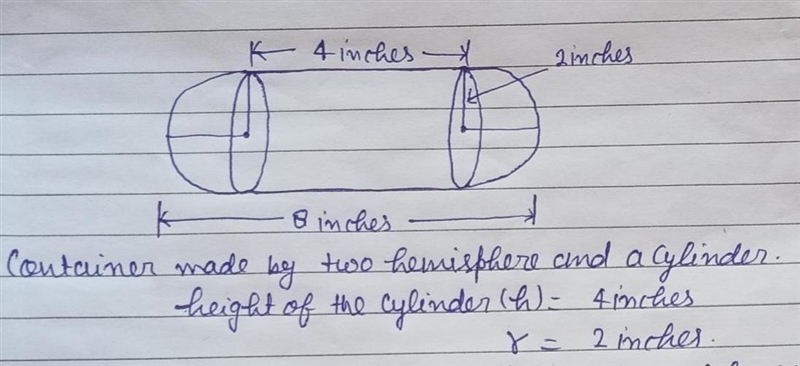 4 inches
2inches
8 inches
Container made by two hemisphere and a Cylinder.
height of the Cylinder (h) = 4inches
r = 2 inches.